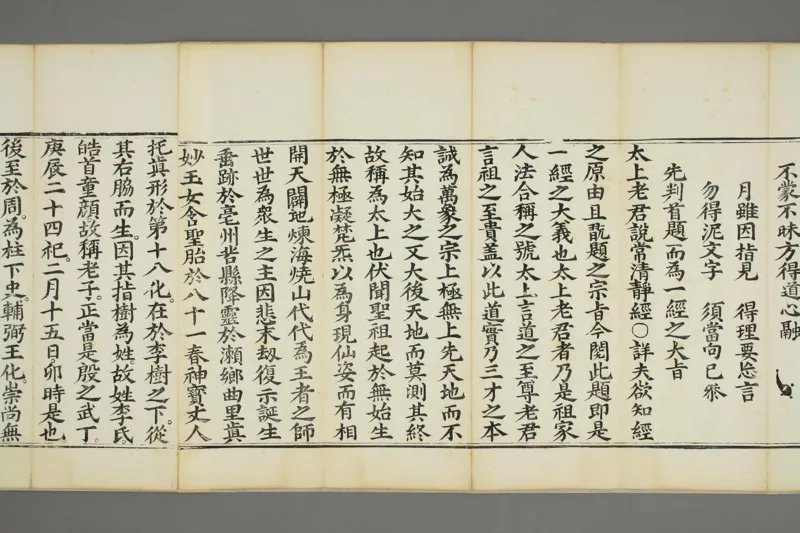 不蒙不昧方得道心融
月雖因指見　得理要忘言
勿得泥文字　須當向己參
先判首題而為一經之大旨
太上老君說常清靜經〇詳夫欲知經
之原由且翫題之宗旨今閱此題即是
一經之大義也太上老君者乃是祖家
人法合稱之號太上言道之至尊老君
言祖之至貴蓋以此道實乃三才之本
誠為萬象之宗上極無上先天地而不
知其始大之又大後天地而莫測其終
故稱為太上也伏聞聖祖起於無始生
於無極凝梵炁以為身現仙姿而有相
開天闢地煉海燒山代代為王者之師
世世為眾生之主因悲末劫復示誕生
垂跡於亳州苦縣降靈於瀨鄉曲里真
妙玉女含聖胎於八十一春神寶丈人
托真形於第十八化。在於李樹之下。從
其右脇而生。因其指樹為姓故姓李氏。
皓首童顏故稱老子。正當是殷之武丁。
庚辰二十四祀。二月十五日。卯時是也
後至於周。為柱下史。輔弼王化。崇尚無